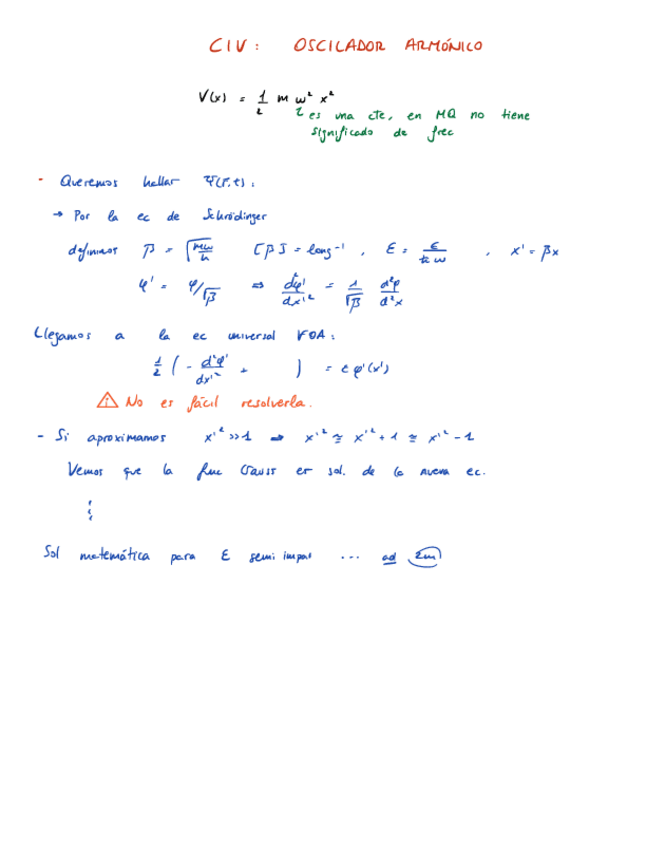 CIV: OSCILADOR ARMÓNICO
V(x) = 1/2 m ω² x²
es una cte, en MQ no tiene
significado de frec
- Queremos hallar Ψ(r,t):
→ Por la ec de Schrödinger
definimos β = √(mω/ħ) [β] = long⁻¹, ε = E/ħω, x' = βx
φ' = φ/√β ⇒ d²φ'/dx'² = 1/√β d²φ/d²x
Llegamos a la ec universal
1/2 ( - d²φ'/dx'² + ) = ε φ'(x')
⚠ No es fácil resolverla.
- Si aproximamos x'² >> 1 ⇒ x'² ≅ x'² + 1 ≅ x'² - 1
Vemos que la func Gauss es sol. de la nueva ec.
⋮
Sol matemática para ε semi impar ... ad